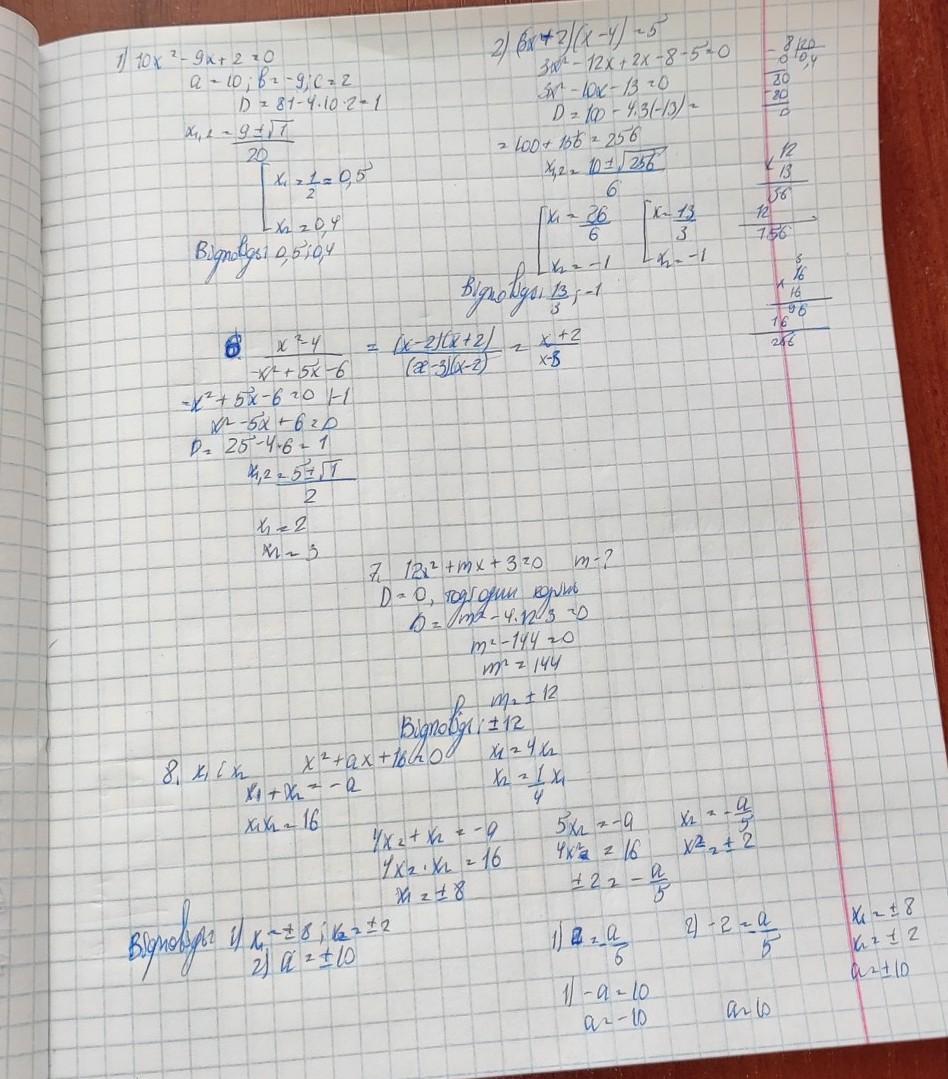 1) 10x² - 9x + 2 = 0
a = 10; b = -9; c = 2
D = 81 - 4·10·2 = 1
x₁,₂ = (9 ± √1)/20
[ x₁ = 1/2 = 0,5
x₂ = 0,4
Відповідь: 0,5; 0,4
2) (3x+2)(x-4) = 5
3x² - 12x + 2x - 8 - 5 = 0
3x² - 10x - 13 = 0
D = 100 - 4·3(-13) =
= 100 + 156 = 256
x₁,₂ = (10 ± √256)/6
[ x₁ = 26/6 [ x = 13/3
x₂ = -1 x₂ = -1
Відповідь: 13/3; -1
8 |20
0 0,4
80
80
0
12
× 13
36
12
156
3
16
× 16
96
16
256
6 (x² - 4)/(-x² + 5x - 6) = ((x-2)(x+2))/((x-3)(x-2)) = (x+2)/(x-3)
-x² + 5x - 6 = 0 |-1
x² - 5x + 6 = 0
D = 25 - 4·6 = 1
x₁,₂ = (5 ± √1)/2
x₁ = 2
x₂ = 3
7. 12x² + mx + 3 = 0 m - ?
D = 0, тоді один корінь
D = m² - 4·12·3 = 0
m² - 144 = 0
m² = 144
m = ± 12
Відповідь: ±12
8. x₁ i x₂ x² + ax + 16 = 0 x₁ = 4x₂
x₁ + x₂ = -a x₂ = 1/4 x₁
x₁x₂ = 16
4x₂ + x₂ = -a 5x₂ = -a x₂ = -a/5
4x₂·x₂ = 16 4x² = 16 x₂ = ±2
x₁ = ±8 ±2 = -a/5
Відповідь: 1) x₁ = ±8; x₂ = ±2
2) a = ±10
1) 2 = a/5 2) -2 = a/5
1) -a = 10
a = -10 a = 10
x₁ = ±8
x₂ = ±2
a = ±10